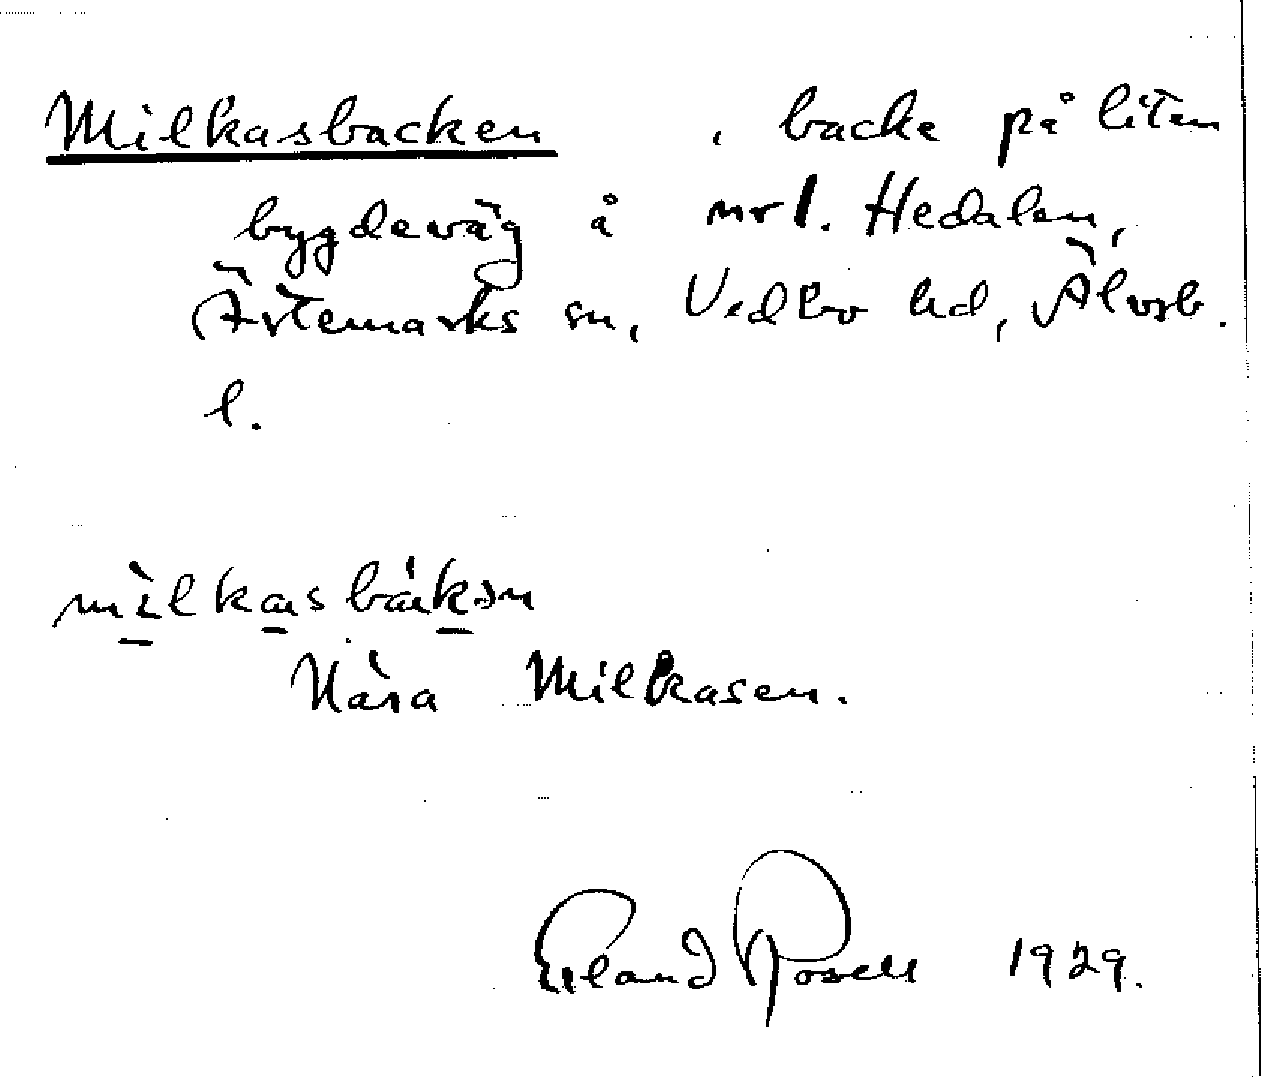 Milkasbacken , backe på liten
bygdeväg å mrl. Hedalen,
Ärtemarks sn, Vedbo hd, Älvsb.
l.
mìlkasbákən
Nära Milkasen.
Erland Rosell 1929.